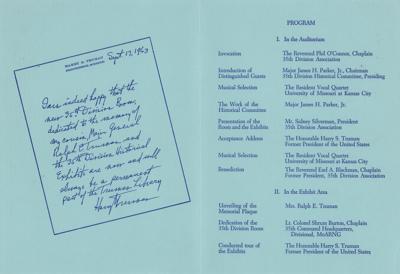 HARRY S. TRUMAN
INDEPENDENCE, MISSOURI
Sept 17, 1963
I am indeed happy that the
new 35th Division Room,
dedicated to the memory of
my cousin, Major General
Ralph E. Truman and
the 35th Division Historical
Exhibits are now and will
always be a permanent
part of the Truman Library
Harry Truman
PROGRAM
I. In the Auditorium
Invocation The Reverend Phil O'Connor, Chaplain
35th Division Association
Introduction of Major James H. Parker, Jr., Chairman
Distinguished Guests 35th Division Historical Committee, Presiding
Musical Selection The Resident Vocal Quartet
University of Missouri at Kansas City
The Work of the Major James H. Parker, Jr.
Historical Committee
Presentation of the Mr. Sidney Silverman, President
Room and the Exhibits 35th Division Association
Acceptance Address The Honorable Harry S. Truman
Former President of the United States
Musical Selection The Resident Vocal Quartet
University of Missouri at Kansas City
Benediction The Reverend Earl A. Blackman, Chaplain
Former President, 35th Division Association
II. In the Exhibit Area
Unveiling of the Mrs. Ralph E. Truman
Memorial Plaque
Dedication of the Lt. Colonel Shrum Burton, Chaplain
35th Division Room 35th Command Headquarters,
Divisional, MoARNG
Conducted tour of The Honorable Harry S. Truman
the Exhibits Former President of the United States